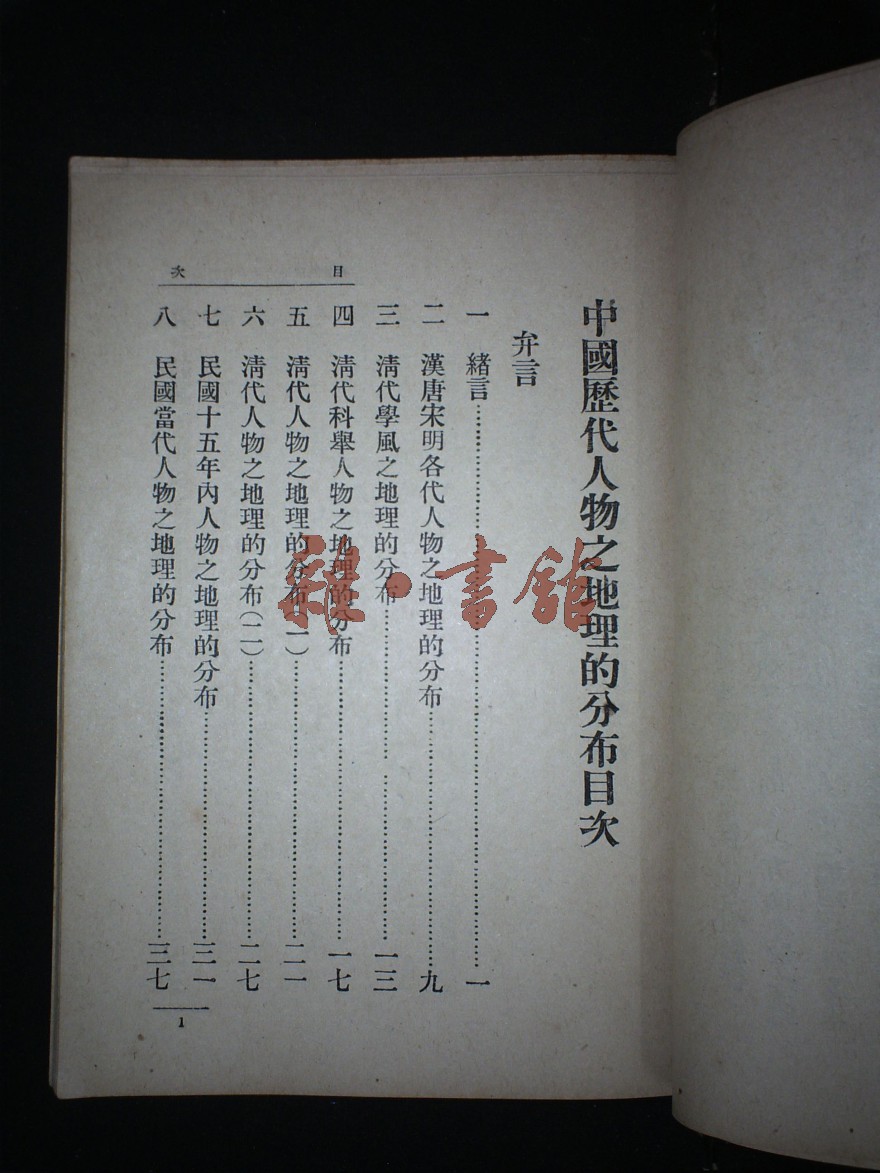 中國歷代人物之地理的分布目次
弁言
一 緒言……一
二 漢唐宋明各代人物之地理的分布……九
三 清代學風之地理的分布……一三
四 清代科舉人物之地理的分布……一七
五 清代人物之地理的分布(一)……二一
六 清代人物之地理的分布(二)……二七
七 民國十五年內人物之地理的分布……三一
八 民國當代人物之地理的分布……三七
目次
1
雜·書館